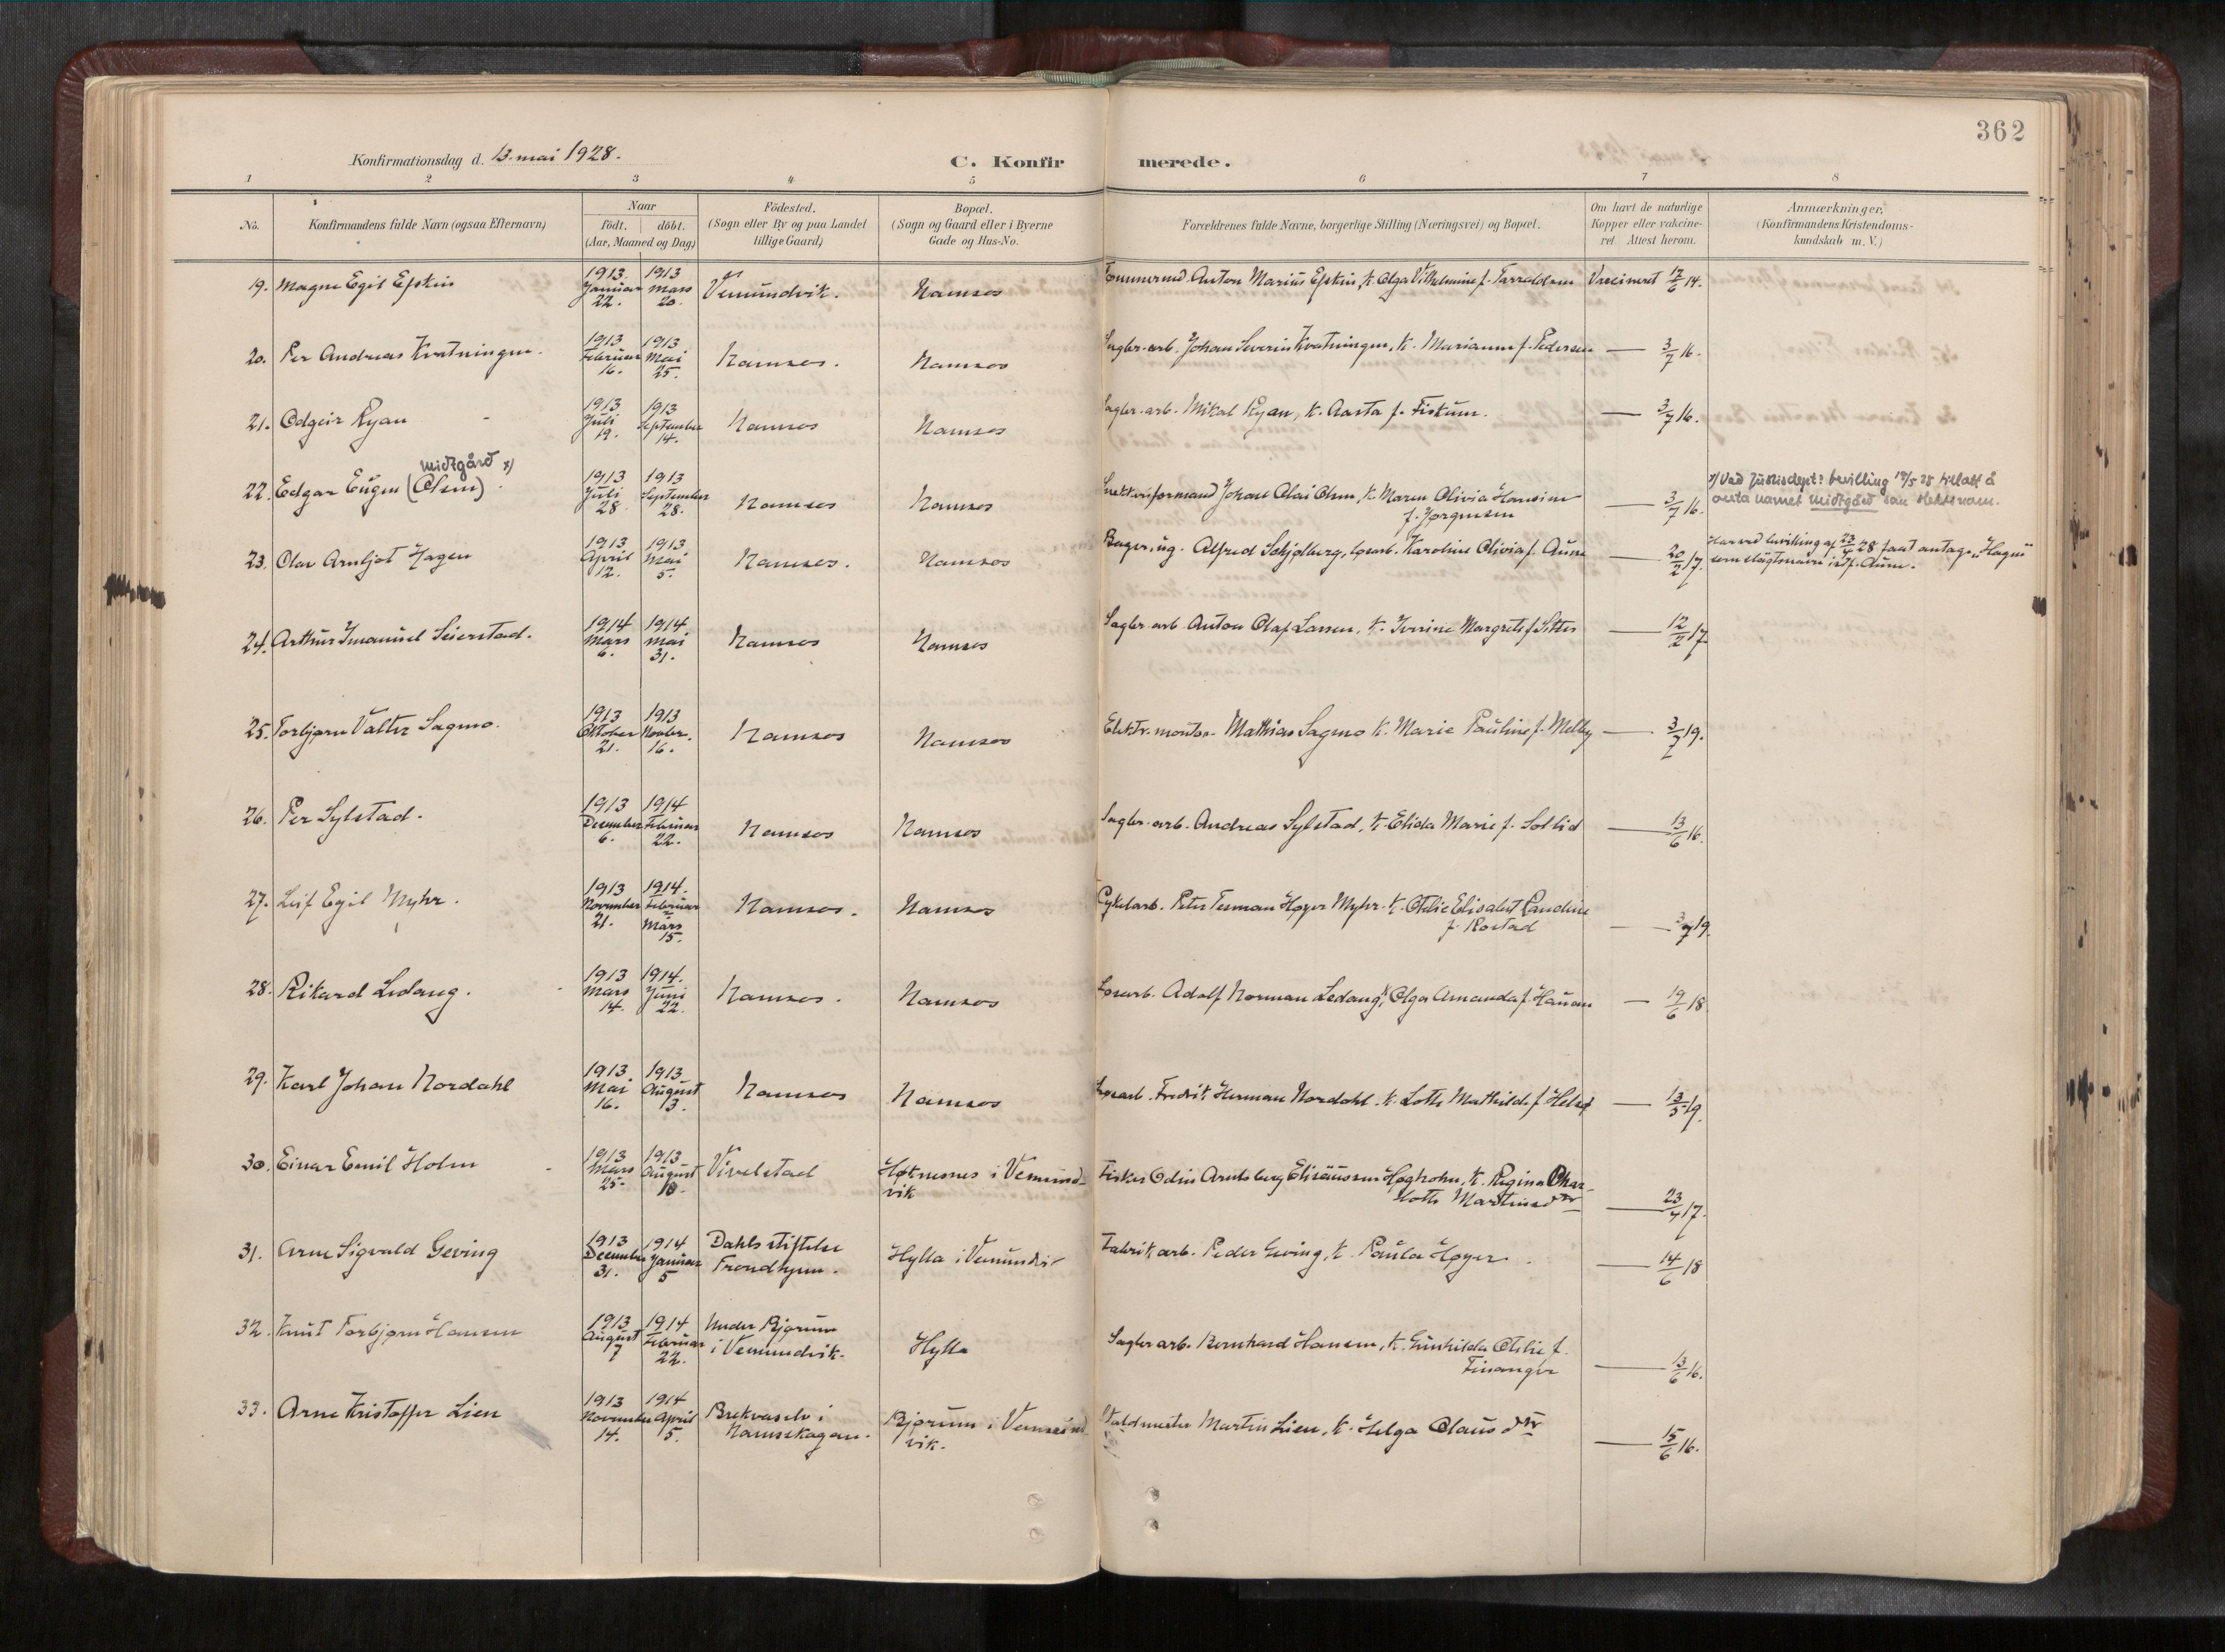 362
Konfirmationsdag d. 13. mai 1928.
C. Konfirmerede.
1 2 3 4 5 6 7 8
No.
Konfirmandens fulde Navn (ogsaa Efternavn)
Naar
født. døbt.
(Aar, Maaned og Dag)
Födested.
(Sogn eller By og paa Landet
tillige Gaard)
Bopæl.
(Sogn og Gaard eller i Byerne
Gade og Hus-No.
Forældrenes fulde Navne, borgerlige Stilling (Næringsvei) og Bopæl.
Om havt de naturlige
Kopper eller vakcine-
ret. Attest herom.
Anmærkninger.
(Konfirmandens Kristendoms-
kundskab m. V.)
19. Magne Egil Efskin 1913 Januar 22. 1913 Mars 20. Vemundvik. Namsos Anton Marius Efskin, k. Olga Vilhelmine f. Vaccineret 17/6 14.
20. Per Andreas Kvatningen. 1913 Februar 16. 1913 Mai 25. Namsos. Namsos Sagbr. arb. Johan Severin Kvatningen, k. Marianne f. Pedersen — 3/7 16.
21. Odgeir Ryan 1913 Juli 19. 1913 September 14. Namsos Namsos Sagbr. arb. Mikal Ryan, k. Aasta f. Fiskum. — 3/7 16.
midtgård x)
22. Edgar Eugen (Olsen). 1913 Juli 28. 1913 September 28. Namsos Namsos Johan Olai Olsen, k. Maren Olivia Hansine
f. Jørgensen — 3/7 16.
x) Ved Justisdept.s bevilling 18/5 28 tillatt å
anta namnet midtgård som slektsnavn.
23. Olav Arnljot Hagen 1913 April 12. 1913 Mai 5. Namsos. Namsos Bager, ug. Alfred Schjølberg, løsarb. Karoline Olivia f. Aune — 20/2 17.
Har ved bevilling af 23/4 28 faat antage "Hagen"
som slægtsnavn istf. Aune.
24. Arthur Imanuel Seierstad. 1914 Mars 6. 1914 Mai 31. Namsos Namsos Sagbr. arb. Anton Olaf Larsen, k. Iverine Margrete f. Sitter — 12/2 17.
25. Torbjørn Valter Sagmo. 1913 Oktober 21. 1913 Novbr. 16. Namsos Namsos Elektr. montør. Mathias Sagmo k. Marie Pauline f. Melby — 3/7 19.
26. Per Sylstad. 1913 December 6. 1914 Februar 22. Namsos Namsos Sagbr. arb. Andreas Sylstad, k. Elida Marie f. Sollid — 13/6 16.
27. Leif Egil Myhr. 1913 November 21. 1914. Februar Mars 15. Namsos. Namsos Cykelarb. Peter Høyer Myhr. k. Otelie Elisabet
f. Rostad — 3/7 19.
28. Rikard Ledang. 1913 Mars 14. 1914. Juni 22. Namsos. Namsos Løsarb. Adolf Norman Ledang, k. Olga Amanda f. Hansen — 19/6 18
29. Karl Johan Nordahl 1913 Mai 16. 1913 August 3. Namsos Namsos Løsarb. Fredrik Herman Nordahl. k. Lotte Mathilde f. — 13/5 19.
30. Einar Emil Holm 1913 Mars 25. 1913 August 10. Vivelstad Høknesnes i Vemund-
vik Fisker Odin Arntsberg Elisæussen Høgholm, k. Regina Char-
lotte Martinsdtr — 23/7 17.
31. Arne Sigvald Geving 1913 December 31. 1914 Januar 5 Dahls stiftelse
Trondhjem. Hylla i Vemundv. Fabrik arb. Peder Geving, k. Paula Høyer. — 14/6 18
32. Knut Torbjørn Hansen 1913 August 7 1914 Februar 22. Under Bjørum
i Vemundvik. Hylla Sagbr arb. Bernhard Hansen, k. Gunhilda Otelie f.
Finanger — 13/6 16.
33. Arne Kristoffer Lien 1913 November 14. 1914 April 5. Brekvasselv i
Namsskogan. Bjørum i Vemund
vik. Martin Lien, k. Helga Olausdtr — 15/6 16.